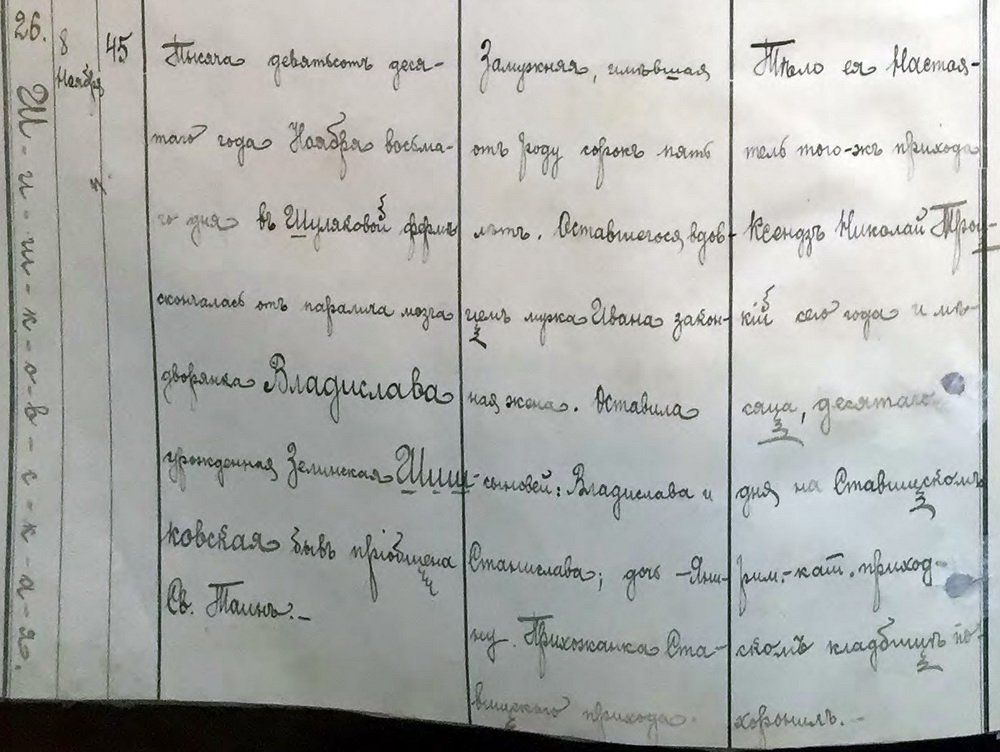 26.
Ш-и-ш-к-о-в-с-к-а-я.
8
Ноября
45
Тысяча девятьсотъ деся-
таго года Ноября восьма-
го дня въ Шуляковой фермѣ
скончалась отъ паралича мозга
дворянка Владислава
урожденная Зелинская Шиш-
ковская бывъ пріобщена
Св. Таинъ.-
Замужняя, имѣвшая
отъ роду сорокъ пять
лѣтъ. Оставшегося вдов-
цемъ мужа Ивана закон-
ная жена. Оставила
сыновей: Владислава и
Станислава; дочь -Яни-
ну. Прихожанка Ста-
вищскаго прихода.
Тѣло ея Настоя-
тель того-жъ прихода
Ксендзъ Николай Троц-
кій сего года и мѣ-
сяца, десятаго
дня на Ставищскомъ
рим.-кат. приход-
скомъ кладбищѣ по-
хоронилъ.-